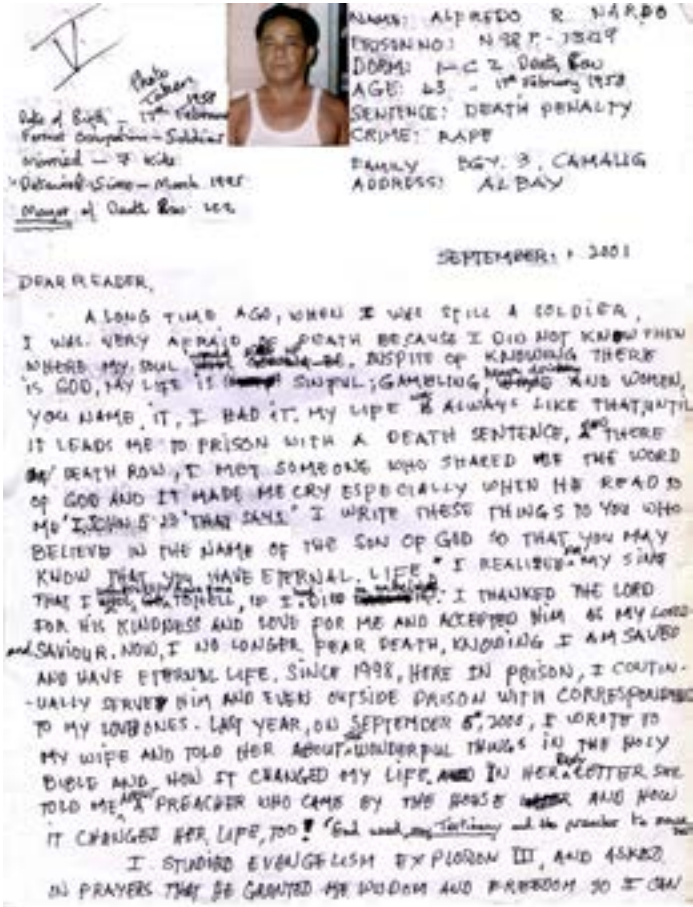 V
Photo
Taken
1958
NAME: ALFREDO R. NARDO
PRISON NO: N98P-
DORM: Death Row
AGE: 43 - 17th February 1958
SENTENCE: DEATH PENALTY
CRIME: RAPE
FAMILY BGY. 3, CAMALIG
ADDRESS: ALBAY
Date of Birth - 17th February
Former Occupation - Soldier
Married - 7 kids
Detained Since - March 1995
Mayor of Death Row
SEPTEMBER, 2001
DEAR READER,
A LONG TIME AGO, WHEN I WAS STILL A SOLDIER,
I WAS VERY AFRAID OF DEATH BECAUSE I DID NOT KNOW THEN
WHERE MY SOUL BE. INSPITE OF KNOWING THERE
IS GOD, MY LIFE IS SINFUL; GAMBLING, AND WOMEN,
YOU NAME, IT, I HAD IT. MY LIFE ALWAYS LIKE THAT, UNTIL
IT LEADS ME TO PRISON WITH A DEATH SENTENCE, THERE
DEATH ROW, I MET SOMEONE WHO SHARED ME THE WORD
OF GOD AND IT MADE ME CRY ESPECIALLY WHEN HE READ TO
ME "I JOHN 5 "THAT SAYS" I WRITE THESE THINGS TO YOU WHO
BELIEVE IN THE NAME OF THE SON OF GOD SO THAT YOU MAY
KNOW THAT YOU HAVE ETERNAL LIFE." I REALIZED MY SINS
THAT I TO HELL, IF I DIED. I THANKED THE LORD
FOR HIS KINDNESS AND LOVE FOR ME AND ACCEPTED HIM AS MY LORD
and SAVIOUR. NOW, I NO LONGER FEAR DEATH, KNOWING I AM SAVED
AND HAVE ETERNAL LIFE. SINCE 1998, HERE IN PRISON, I CONTIN-
-UALLY SERVED HIM AND EVEN OUTSIDE PRISON WITH CORRESPONDENCE
TO MY LOVEONES. LAST YEAR, ON SEPTEMBER 2000, I WROTE TO
MY WIFE AND TOLD HER ABOUT WONDERFUL THINGS IN THE HOLY
BIBLE AND HOW IT CHANGED MY LIFE. IN HER Reply LETTER SHE
TOLD ME ABOUT A PREACHER WHO CAME BY THE HOUSE AND HOW
IT CHANGED HER LIFE, TOO! God used my Testimony and the preacher to
I STUDIED EVANGELISM EXPLOSION III, AND ASKED
IN PRAYERS THAT HE GRANTED ME WISDOM AND FREEDOM SO I CAN